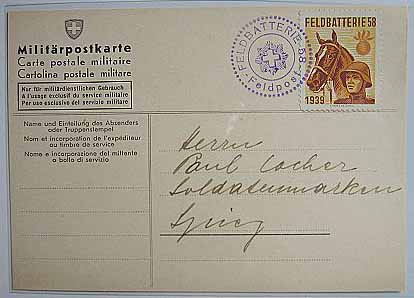 Militärpostkarte
Carte postale militaire
Cartolina postale militare
Nur für militärdienstlichen Gebrauch
A l'usage exclusif du service militaire
Per uso esclusivo del servizio militare
Name und Einteilung des Absenders
oder Truppenstempel
Nom et incorporation de l'expéditeur
ou timbre de service
Nome e incorporazione del mittente
o bollo di servizio
FELDBATTERIE 58
Feldpost
FELDBATTERIE 58
1939
Herrn
Paul Locher
Soldatenmarken
Spiez